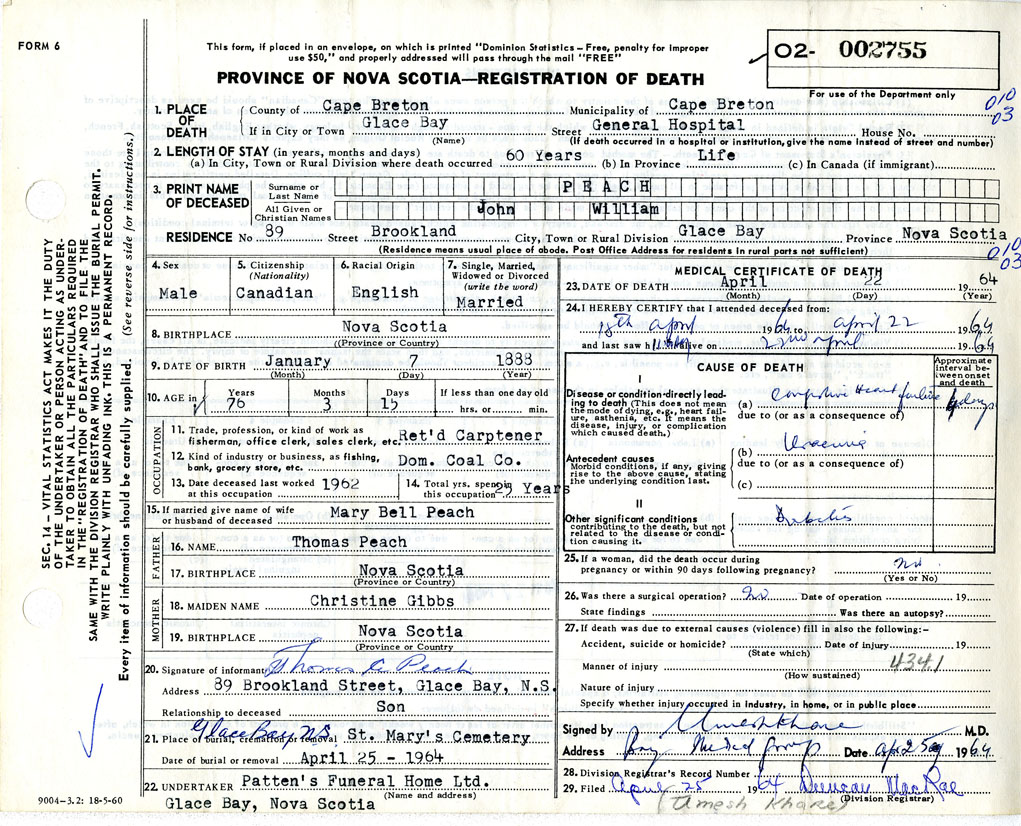 FORM 6
This form, if placed in an envelope, on which is printed "Dominion Statistics – Free, penalty for improper
use $50," and properly addressed will pass through the mail "FREE"
PROVINCE OF NOVA SCOTIA—REGISTRATION OF DEATH
02- 002755
For use of the Department only
010
03
1. PLACE OF DEATH
County of Cape Breton Municipality of Cape Breton
If in City or Town Glace Bay Street General Hospital House No.
(Name) (If death occurred in a hospital or institution, give the name instead of street and number)
2. LENGTH OF STAY (in years, months and days)
(a) In City, Town or Rural Division where death occurred 60 Years (b) In Province Life (c) In Canada (if immigrant)
3. PRINT NAME OF DECEASED
Surname or Last Name PEACH
All Given or Christian Names John William
RESIDENCE No 89 Street Brookland City, Town or Rural Division Glace Bay Province Nova Scotia
(Residence means usual place of abode. Post Office Address for residents in rural parts not sufficient)
010
03
4. Sex
Male
5. Citizenship
(Nationality)
Canadian
6. Racial Origin
English
7. Single, Married,
Widowed or Divorced
(write the word)
Married
8. BIRTHPLACE Nova Scotia
((Province or Country)
9. DATE OF BIRTH January 7 1888
(Month) (Day) (Year)
10. AGE in
Years Months Days If less than one day old
76 3 15 hrs. or min.
OCCUPATION
11. Trade, profession, or kind of work as
fisherman, office clerk, sales clerk, etc. Ret'd Carptener
12. Kind of industry or business, as fishing,
bank, grocery store, etc. Dom. Coal Co.
13. Date deceased last worked
at this occupation 1962
14. Total yrs. spent in
this occupation 25 Years
15. If married give name of wife
or husband of deceased Mary Bell Peach
FATHER
16. NAME Thomas Peach
17. BIRTHPLACE Nova Scotia
(Province or Country)
MOTHER
18. MAIDEN NAME Christine Gibbs
19. BIRTHPLACE Nova Scotia
(Province or Country)
20. Signature of informant Thomas G. Peach
Address 89 Brookland Street, Glace Bay, N.S.
Relationship to deceased Son
Glace Bay N.S.
21. Place of burial, cremation or removal St. Mary's Cemetery
Date of burial or removal April 25 - 1964
22. UNDERTAKER Patten's Funeral Home Ltd.
(Name and address)
Glace Bay, Nova Scotia
9004–3.2: 18-5-60
MEDICAL CERTIFICATE OF DEATH
23. DATE OF DEATH April 22 1964
(Month) (Day) (Year)
24. I HEREBY CERTIFY that I attended deceased from:
18th April 1964 to April 22 1964
and last saw h alive on 22nd April 1964
CAUSE OF DEATH
Approximate
interval be-
tween onset
and death
I
Disease or condition directly lead-
ing to death (This does not mean
the mode of dying, e.g., heart fail-
ure, asthenia, etc. It means the
disease, injury, or complication
which caused death.)
(a) Congestive Heart failure days
due to (or as a consequence of)
Antecedent causes
Morbid conditions, if any, giving
rise to the above cause, stating
the underlying condition last.
(b) Uraemia
due to (or as a consequence of)
(c)
II
Other significant conditions
contributing to the death, but not
related to the disease or condi-
tion causing it.
Diabetis
25. If a woman, did the death occur during
pregnancy or within 90 days following pregnancy? No
(Yes or No)
26. Was there a surgical operation? No Date of operation 19
State findings Was there an autopsy?
27. If death was due to external causes (violence) fill in also the following:–
Accident, suicide or homicide? Date of injury 19
(State which)
4341
Manner of injury
(How sustained)
Nature of injury
Specify whether injury occurred in industry, in home, or in public place
Signed by Umesh Khare M.D.
Address Bay Medical Group Date 1964
28. Division Registrar's Record Number
29. Filed April 25 1964 Duncan MacRae
(Division Registrar)
(Umesh Khare)
SEC. 14 – VITAL STATISTICS ACT MAKES IT THE DUTY
OF THE UNDERTAKER OR PERSON ACTING AS UNDER-
TAKER TO OBTAIN ALL THE PARTICULARS REQUIRED
IN THE "REGISTRATION OF DEATH" AND TO FILE THE
SAME WITH THE DIVISION REGISTRAR WHO SHALL ISSUE THE BURIAL PERMIT.
WRITE PLAINLY WITH UNFADING INK. THIS IS A PERMANENT RECORD.
Every item of information should be carefully supplied. (See reverse side for instructions.)